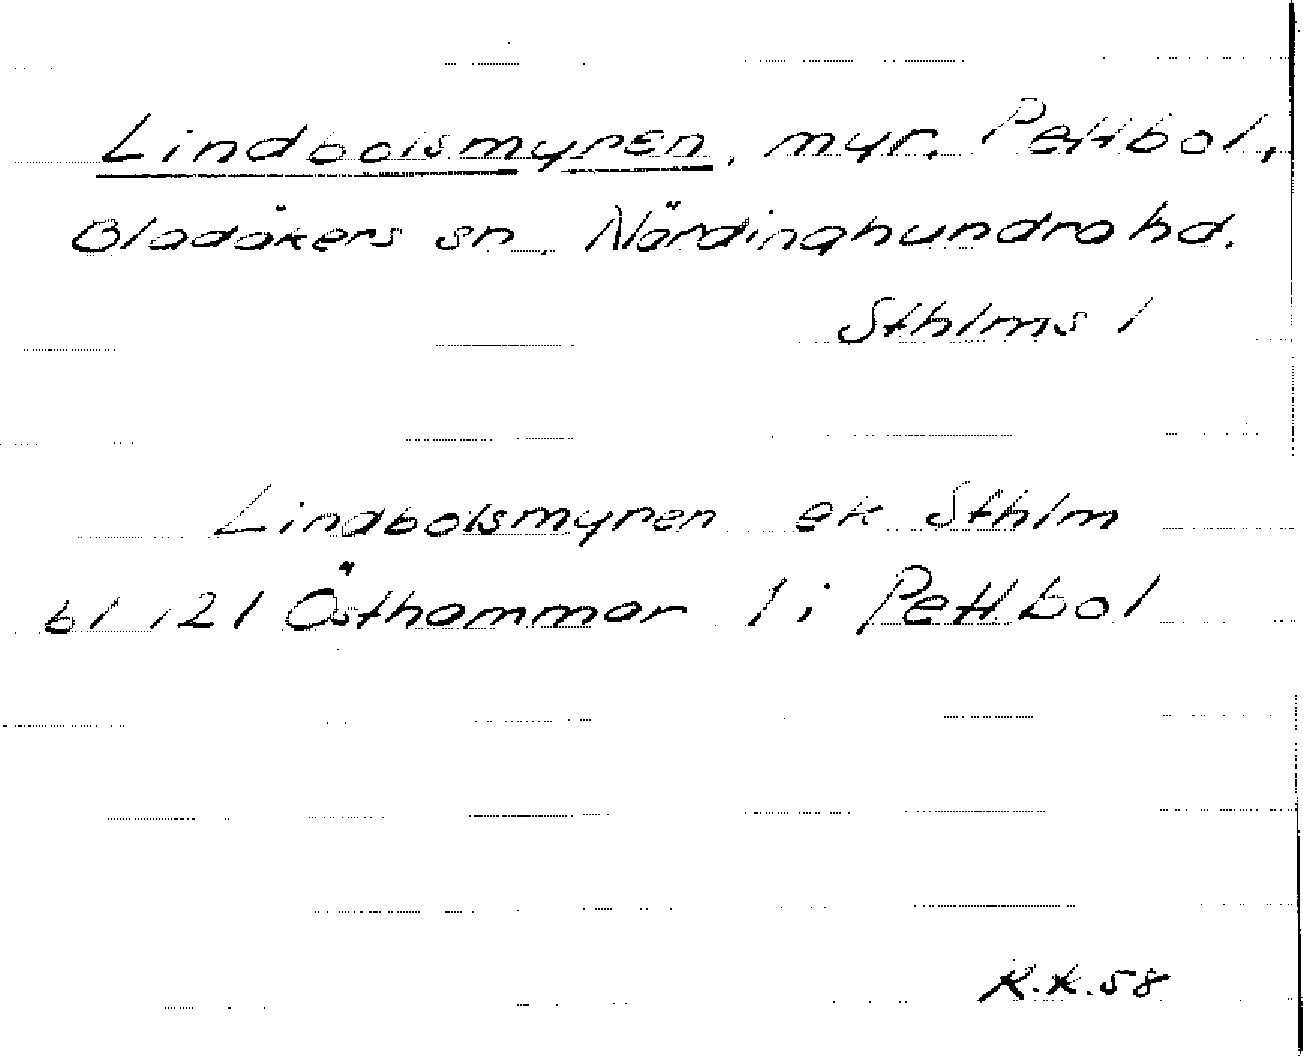 Lindbolsmyren, myr. Pettbol,
Bladåkers sn. Närdinghundra hd.
Sthlms l
Lindbolsmyren ek Sthlm
bl 121 Östhammar l i Pettbol
K.K.58